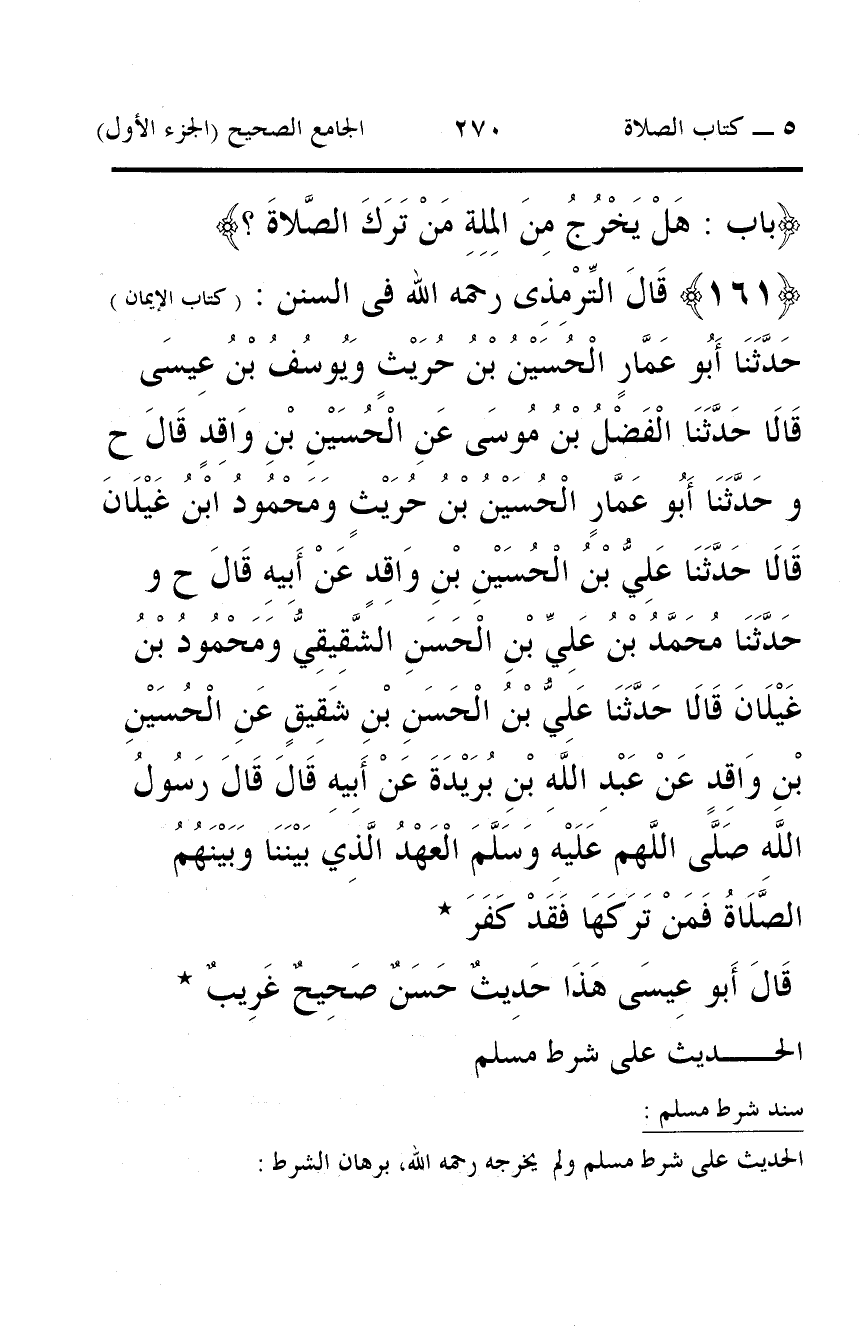 ٥ ــ كتاب الصلاة ٢٧٠ الجامع الصحيح (الجزء الأول)
﴿باب : هَلْ يَخْرُجُ مِنَ المِلِةِ مَنْ تَرَكَ الصَّلاةَ ؟﴾
﴿١٦١﴾ قَالَ التِّرْمِذِى رحمه الله فى السنن : ( كتاب الإيمان )
حَدَّثَنَا أَبُو عَمَّارٍ الْحُسَيْنُ بْنُ حُرَيْثٍ وَيُوسُفُ بْنُ عِيسَى
قَالَا حَدَّثَنَا الْفَضْلُ بْنُ مُوسَى عَنِ الْحُسَيْنِ بْنِ وَاقِدٍ قَالَ ح
و حَدَّثَنَا أَبُو عَمَّارٍ الْحُسَيْنُ بْنُ حُرَيْثٍ وَمَحْمُودُ ابْنُ غَيْلَانَ
قَالَا حَدَّثَنَا عَلِيُّ بْنُ الْحُسَيْنِ بْنِ وَاقِدٍ عَنْ أَبِيهِ قَالَ ح و
حَدَّثَنَا مُحَمَّدُ بْنُ عَلِيِّ بْنِ الْحَسَنِ الشَّقِيقِيُّ وَمَحْمُودُ بْنُ
غَيْلَانَ قَالَا حَدَّثَنَا عَلِيُّ بْنُ الْحَسَنِ بْنِ شَقِيقٍ عَنِ الْحُسَيْنِ
بْنِ وَاقِدٍ عَنْ عَبْدِ اللَّهِ بْنِ بُرَيْدَةَ عَنْ أَبِيهِ قَالَ قَالَ رَسُولُ
اللَّهِ صَلَّى اللَّهم عَلَيْهِ وَسَلَّمَ الْعَهْدُ الَّذِي بَيْنَنَا وَبَيْنَهُمُ
الصَّلَاةُ فَمَنْ تَرَكَهَا فَقَدْ كَفَرَ ★
قَالَ أَبو عِيسَى هَذَا حَدِيثٌ حَسَنٌ صَحِيحٌ غَرِيبٌ ★
الحــــديث على شرط مسلم
سند شرط مسلم :
الحديث على شرط مسلم ولم يخرجه رحمه الله، برهان الشرط :